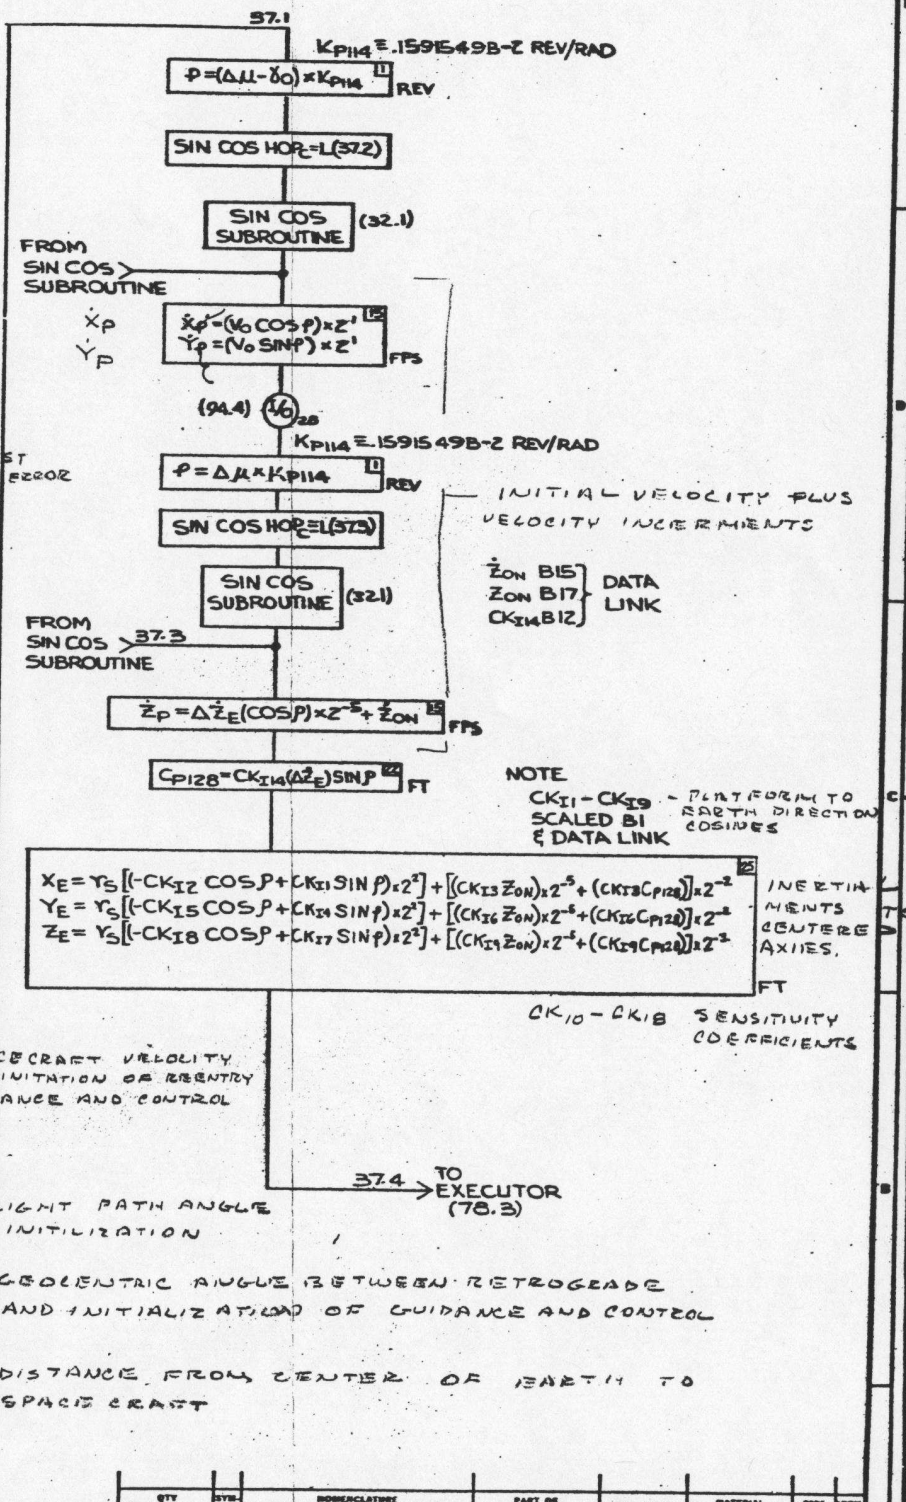 37.1
K_P114 ≡ .1591549B-2 REV/RAD
ρ=(Δμ-γ0)×K_P114 1
REV
SIN COS HOP_C=L(37.2)
SIN COS
SUBROUTINE
(32.1)
FROM
SIN COS
SUBROUTINE
Ẋp
Ẏp
Ẋp=(V0 COSρ)×2¹ 15
Ẏp=(V0 SINρ)×2¹
FPS
(94.4) I/O 28
K_P114 ≡ .1591549B-2 REV/RAD
ST
ERROR
ρ=Δμ×K_P114 1
REV
INITIAL VELOCITY PLUS
VELOCITY INCERMENTS
SIN COS HOP_C=L(37.3)
SIN COS
SUBROUTINE
(32.1)
Ż_ON B15
Z_ON B17
CK_I14 B12
DATA
LINK
FROM
SIN COS
SUBROUTINE
37.3
Ż_P=ΔŻ_E(COSρ)×2⁻⁵+Ż_ON 15
FPS
C_P128=CK_I14(ΔŻ_E)SINρ 22
FT
NOTE
CK_I1-CK_I9
SCALED B1
& DATA LINK
- PLATFORM TO
EARTH DIRECTION
COSINES
25
X_E=r_S[(-CK_I2 COSρ+CK_I1 SINρ)×2²]+[(CK_I3 Z_ON)×2⁻⁵+(CK_I3 C_P128)]×2⁻²
Y_E=r_S[(-CK_I5 COSρ+CK_I4 SINρ)×2²]+[(CK_I6 Z_ON)×2⁻⁵+(CK_I6 C_P128)]×2⁻²
Z_E=r_S[(-CK_I8 COSρ+CK_I7 SINρ)×2²]+[(CK_I9 Z_ON)×2⁻⁵+(CK_I9 C_P128)]×2⁻²
FT
INERTIA
MENTS
CENTERE
AXIIES.
CK10-CK18 SENSITIVITY
COEFFICIENTS
CECRAFT VELOCITY
INITATION OF REENTRY
ANCE AND CONTROL
37.4
TO
EXECUTOR
(78.3)
LIGHT PATH ANGLE
INITILIZATION
GEOCENTRIC ANGLE BETWEEN RETROGRADE
AND INITIALIZATION OF GUIDANCE AND CONTROL
DISTANCE FROM CENTER OF EARTH TO
SPACE CRAFT
D
C
B
QTY
SYM
NOMENCLATURE
PART OR
MATERIAL